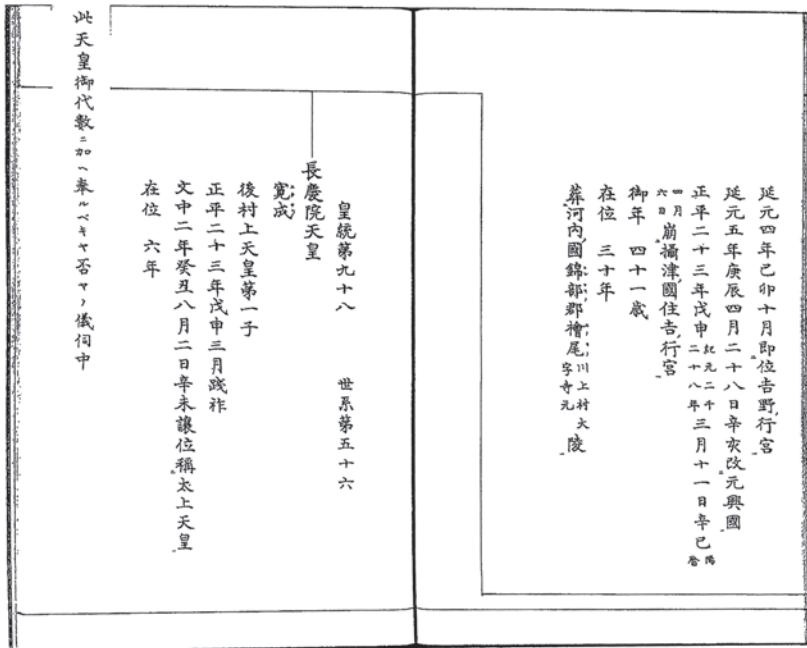 延元四年己卯十月即位吉野行宮
延元五年庚辰四月二十八日辛亥改元興國
正平二十三年戊申紀元二千二十八年三月十一日辛巳陽暦
四月六日崩攝津國住吉行宮
御年 四十一歳
在位 三十年
葬河內國錦部郡檜尾川上村大字寺元陵
皇統第九十八 世系第五十六
長慶院天皇
寛成
後村上天皇第一子
正平二十三年戊申三月踐祚
文中二年癸丑八月二日辛未讓位稱太上天皇
在位 六年
此天皇御代數ニ加ヘ奉ルベキヤ否ヤノ儀伺中